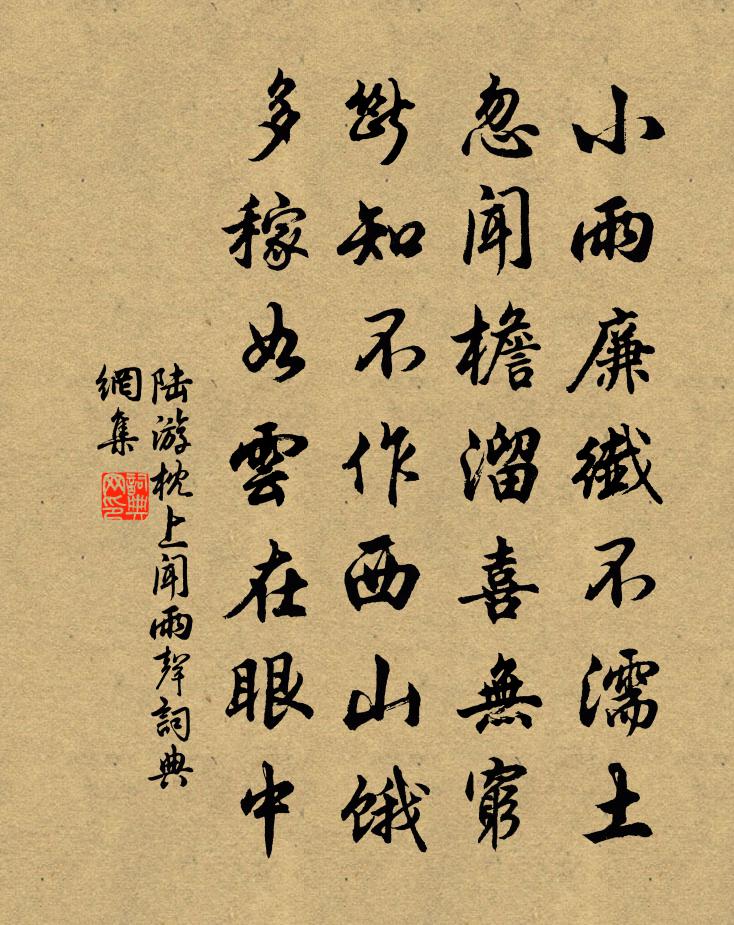 小雨廉纖不濡土
忽聞檐溜喜無窮
斷知不作西山餓
多稼如雲在眼中
陆游枕上闻雨聲詞典
網集
詞典
网印